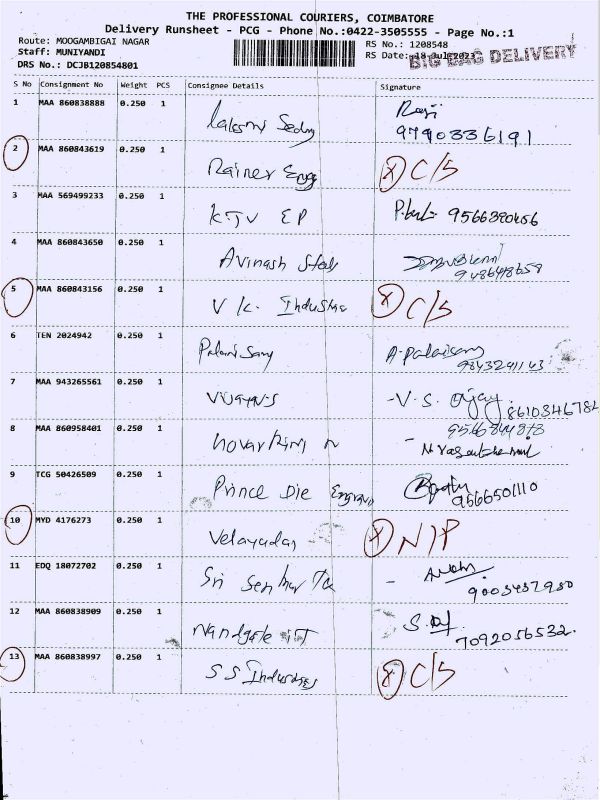 THE PROFESSIONAL COURIERS, COIMBATORE
Delivery Runsheet - PCG - Phone No.:0422-3505555 - Page No.:1
Route: MOOGAMBIGAI NAGAR RS No.: 1208548
Staff: MUNIYANDI RS Date: 18-Jul-2023
BIG BAG DELIVERY
DRS No.: DCJB120854801
S No Consignment No Weight PCS Consignee Details Signature
1 MAA 860838888 0.250 1
9790336191
2 MAA 860843619 0.250 1 Rainer Engg X C/S
3 MAA 569499233 0.250 1 KTV EP
4 MAA 860843650 0.250 1 Avinash
5 MAA 860843156 0.250 1 V K. Industrie X C/S
6 TEN 2024942 0.250 1 Palani Samy A. Palaisamy
9843291143
7 MAA 943265561 0.250 1 -V. S. Vijay
8610346782
8 MAA 860958401 0.250 1
9 TCG 50426509 0.250 1 Prince Die Engravs
9566501110
10 MYD 4176273 0.250 1 Velayudan X N/P
11 EDQ 18072702 0.250 1 Sri
12 MAA 860838909 0.250 1
7092056532.
13 MAA 860838997 0.250 1 S S Industries X C/S